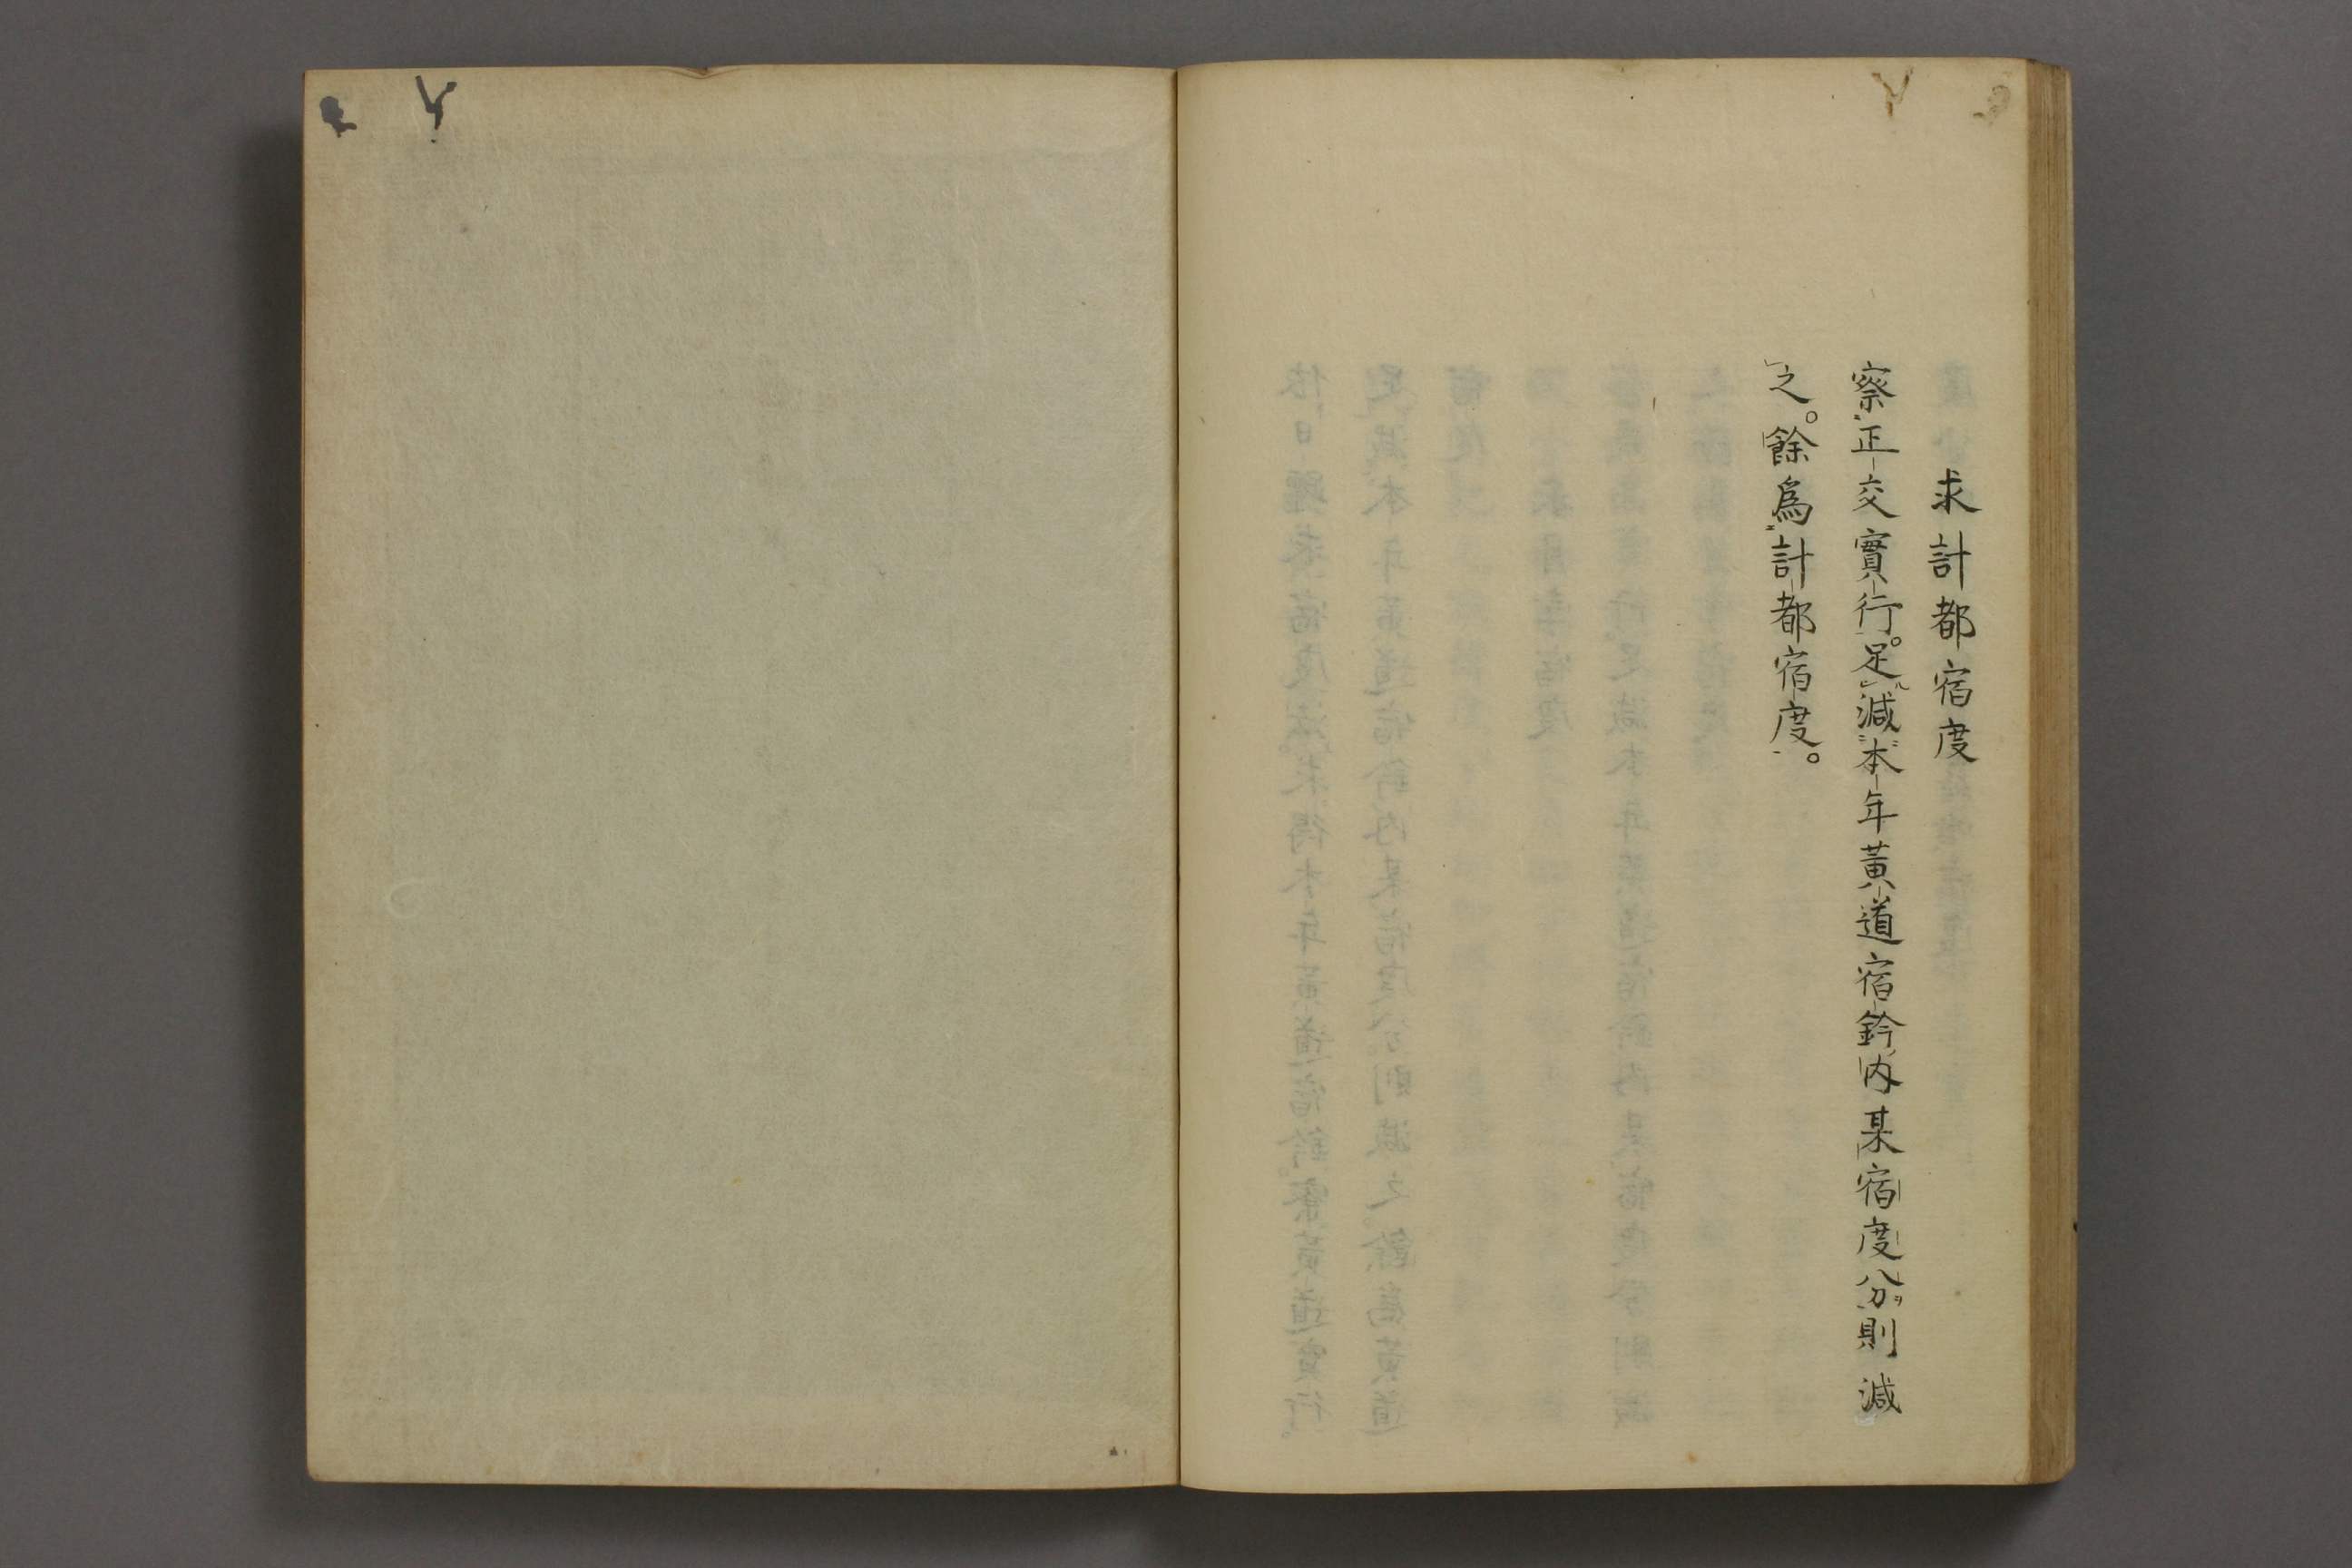 求計都宿度
察正交實行。足減本年黃道宿鈐內某宿度分則減
之。餘爲計都宿度。